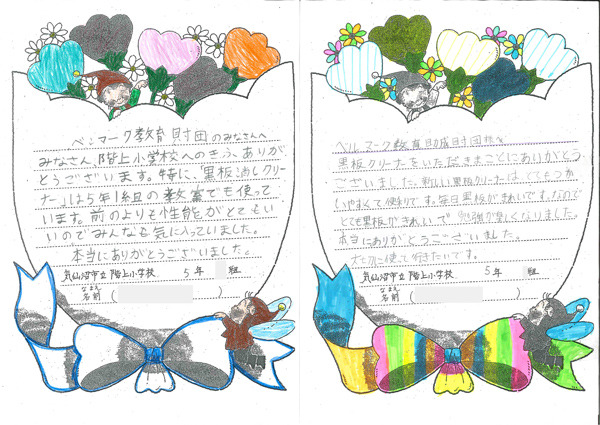 ベルマーク教育財団のみなさんへ
みなさん、階上小学校へのきふ、ありが
とうございます。特に、「黒板消しクリー
ナー」は5年1組の教室でも使って
います。前のよりも性能がとてもい
いのでみんなも気に入っていました。
本当にありがとうございました。
気仙沼市立階上小学校 5年 組
なまえ
名前( )
ベルマーク教育助成財団様へ
黒板クリーナーをいただきまことにありがとう
ございました。新しい黒板クリーナーはとてもつか
いやすくて便利です。毎日黒板がきれいです。なので
とても黒板がきれいで勉強が楽しくなりました。
本当にありがとうございました。
大切に使って行きたいです。
気仙沼市立階上小学校 5年 組
なまえ
名前( )